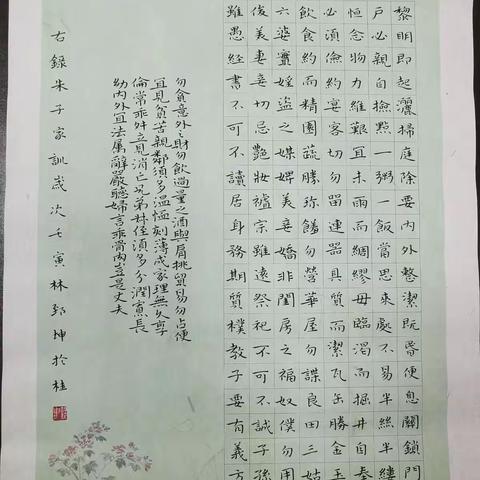 黎明即起灑掃庭除要內外整潔既昏便息關鎖門
戶必親自撿點一粥一飯當思來處不易半絲半縷
恒念物力維艱宜未雨而綢繆毋臨渴而掘井自奉
必須儉約宴客切勿留連器具質而潔瓦缶勝金玉
飲食約而精園蔬勝珍饈勿營華屋勿謀良田三姑
六婆實婬盜之媒婢美妾嬌非閨房之福奴僕勿用
俊美妻妾切忌艷妝祖宗雖遠祭祀不可不誠子孫
雖愚經書不可不讀居身務期質樸教子要有義方
勿貪意外之財勿飲過量之酒與肩挑貿易勿占便
宜見貧苦親鄰須多溫恤刻薄成家理無久享
倫常乖舛立見消亡兄弟叔侄須多分潤寡長
幼內外宜法屬辭嚴聽婦言乖骨肉豈是丈夫
右錄朱子家訓歲次壬寅林郅坤於桂